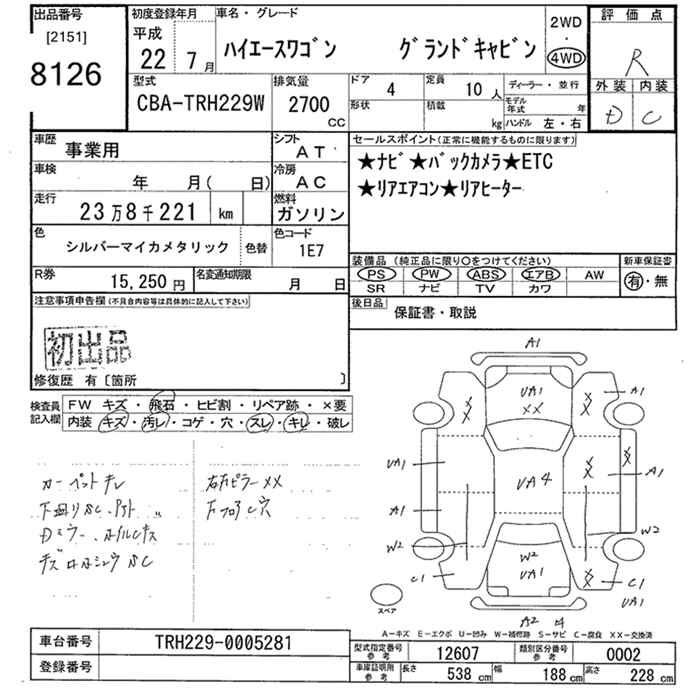 出品番号
[2151]
8126
初度登録年月
平成
22年7月
車名・グレード
ハイエースワゴン グランドキャビン
2WD
・
4WD
評価点
R
外装 内装
D C
型式
CBA-TRH229W
排気量
2700
CC
ドア
4
定員
10人
ディーラー・並行
形状
積載
kg
モデル年式 年
ハンドル 左・右
車歴
事業用
シフト
AT
車検
年 月( 日)
冷房
AC
走行
23万8千221 km
燃料
ガソリン
色
シルバーマイカメタリック
色替
色コード
1E7
R券
15,250円
名変通知期限
月 日
セールスポイント(正常に機能するものに限ります)
★ナビ★バックカメラ★ETC
★リアエアコン★リアヒーター
装備品(純正品に限り〇をつけてください)
新車保証書
PS PW ABS エアB AW
SR ナビ TV カワ
有・無
後日品
保証書・取説
注意事項申告欄(不具合内容等は具体的に記入して下さい)
初出品
修復歴 有〔箇所 〕
検査員
記入欄
FW キズ・飛石・ヒビ割・リペア跡・×要
内装・キズ・汚レ・コゲ・穴・スレ・キレ・破レ
カーペットキレ
右Rピラー XX
下廻りSC
フロアC穴
A1
UA1
XX
A1
XX
XX
UA1
UA4
XX
XX
A1
A1
W2
W2
W2
UA1
XX
C1
C1
A2
スペア
A-キズ E-エクボ U-凹み W-補修跡 S-サビ C-腐食 XX-交換済
車台番号
TRH229-0005281
登録番号
型式指定番号
参考
12607
類別区分番号
参考
0002
車庫証明用
参考
長さ 538 cm
幅 188 cm
高さ 228 cm